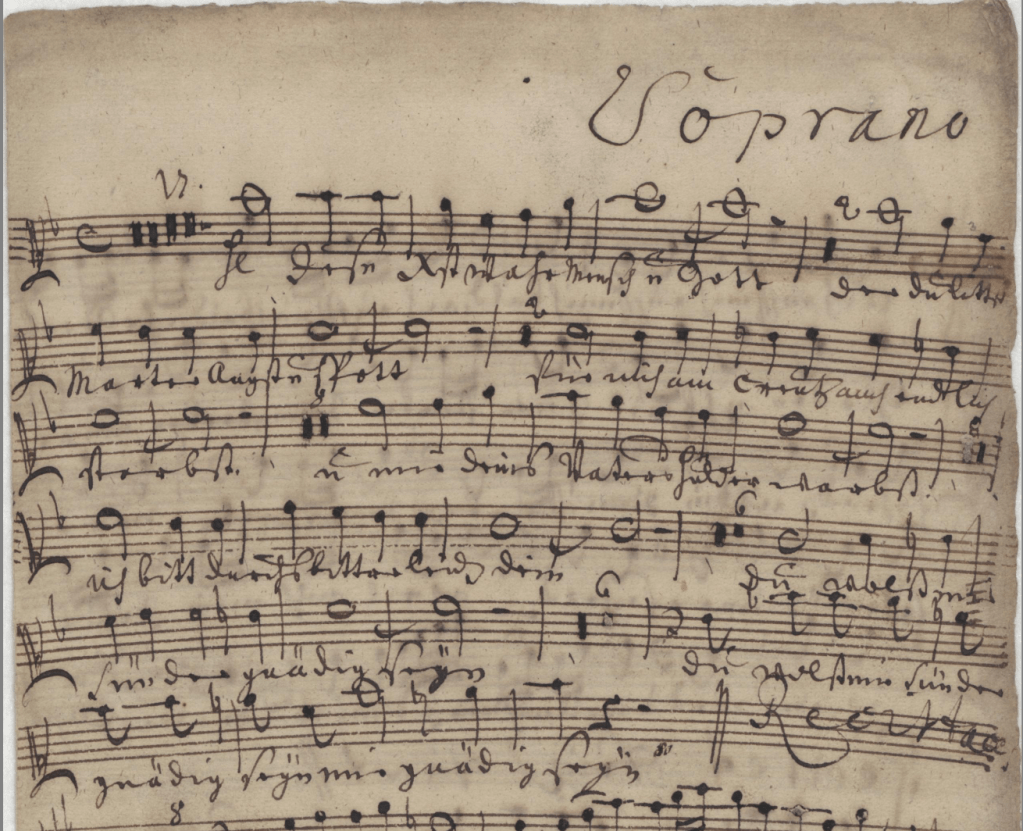 Soprano
17.
He Jesu Xst wahr Mensch ū Gott der du littst
2
Marter Angst ū Spott für mich am Creutz auch endlich
2
starbst. ū mir deins Vaters Huld erwarbst.
ich bitt durchs bitter leiden dein Du wolst mir
6
Sünder gnädig seyn du wolst mir Sünder
6
gnädig seyn mir gnädig seyn
Recit tac
8